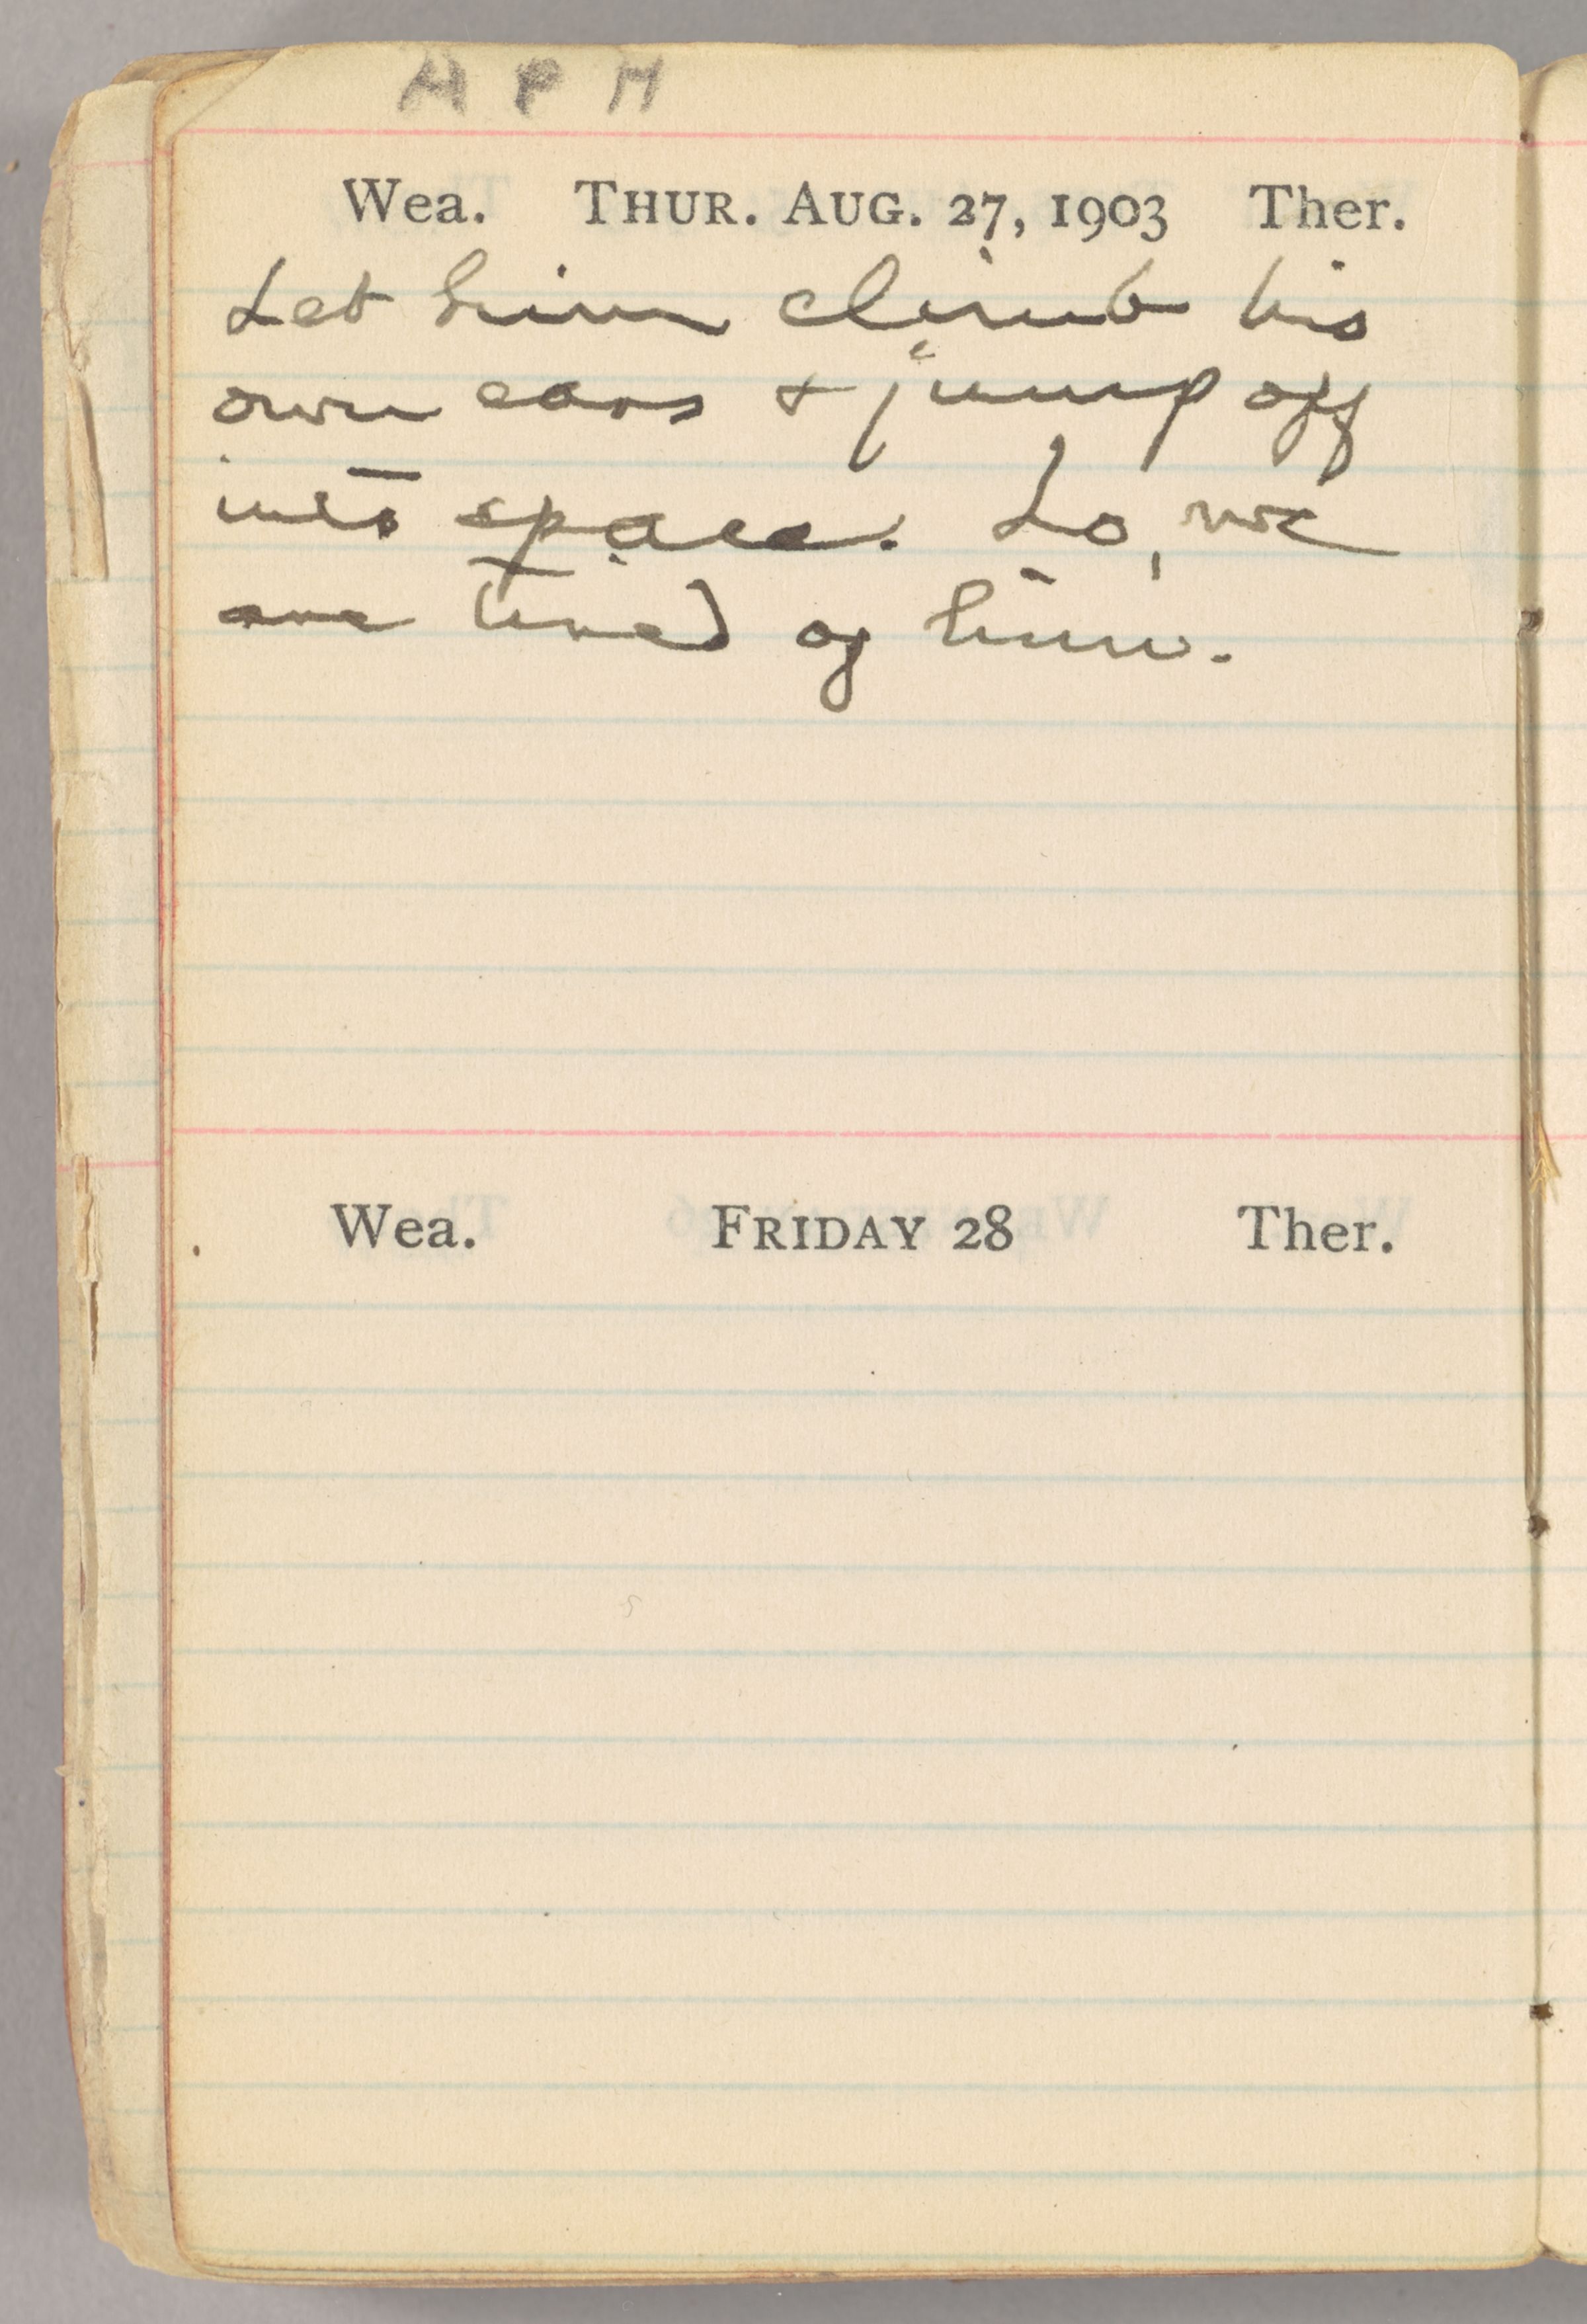 H P M
Wea. THUR. AUG. 27, 1903 Ther.
Let him climb his
own ears & jump off
into space. Lo, we
are tired of him.
Wea. FRIDAY 28 Ther.